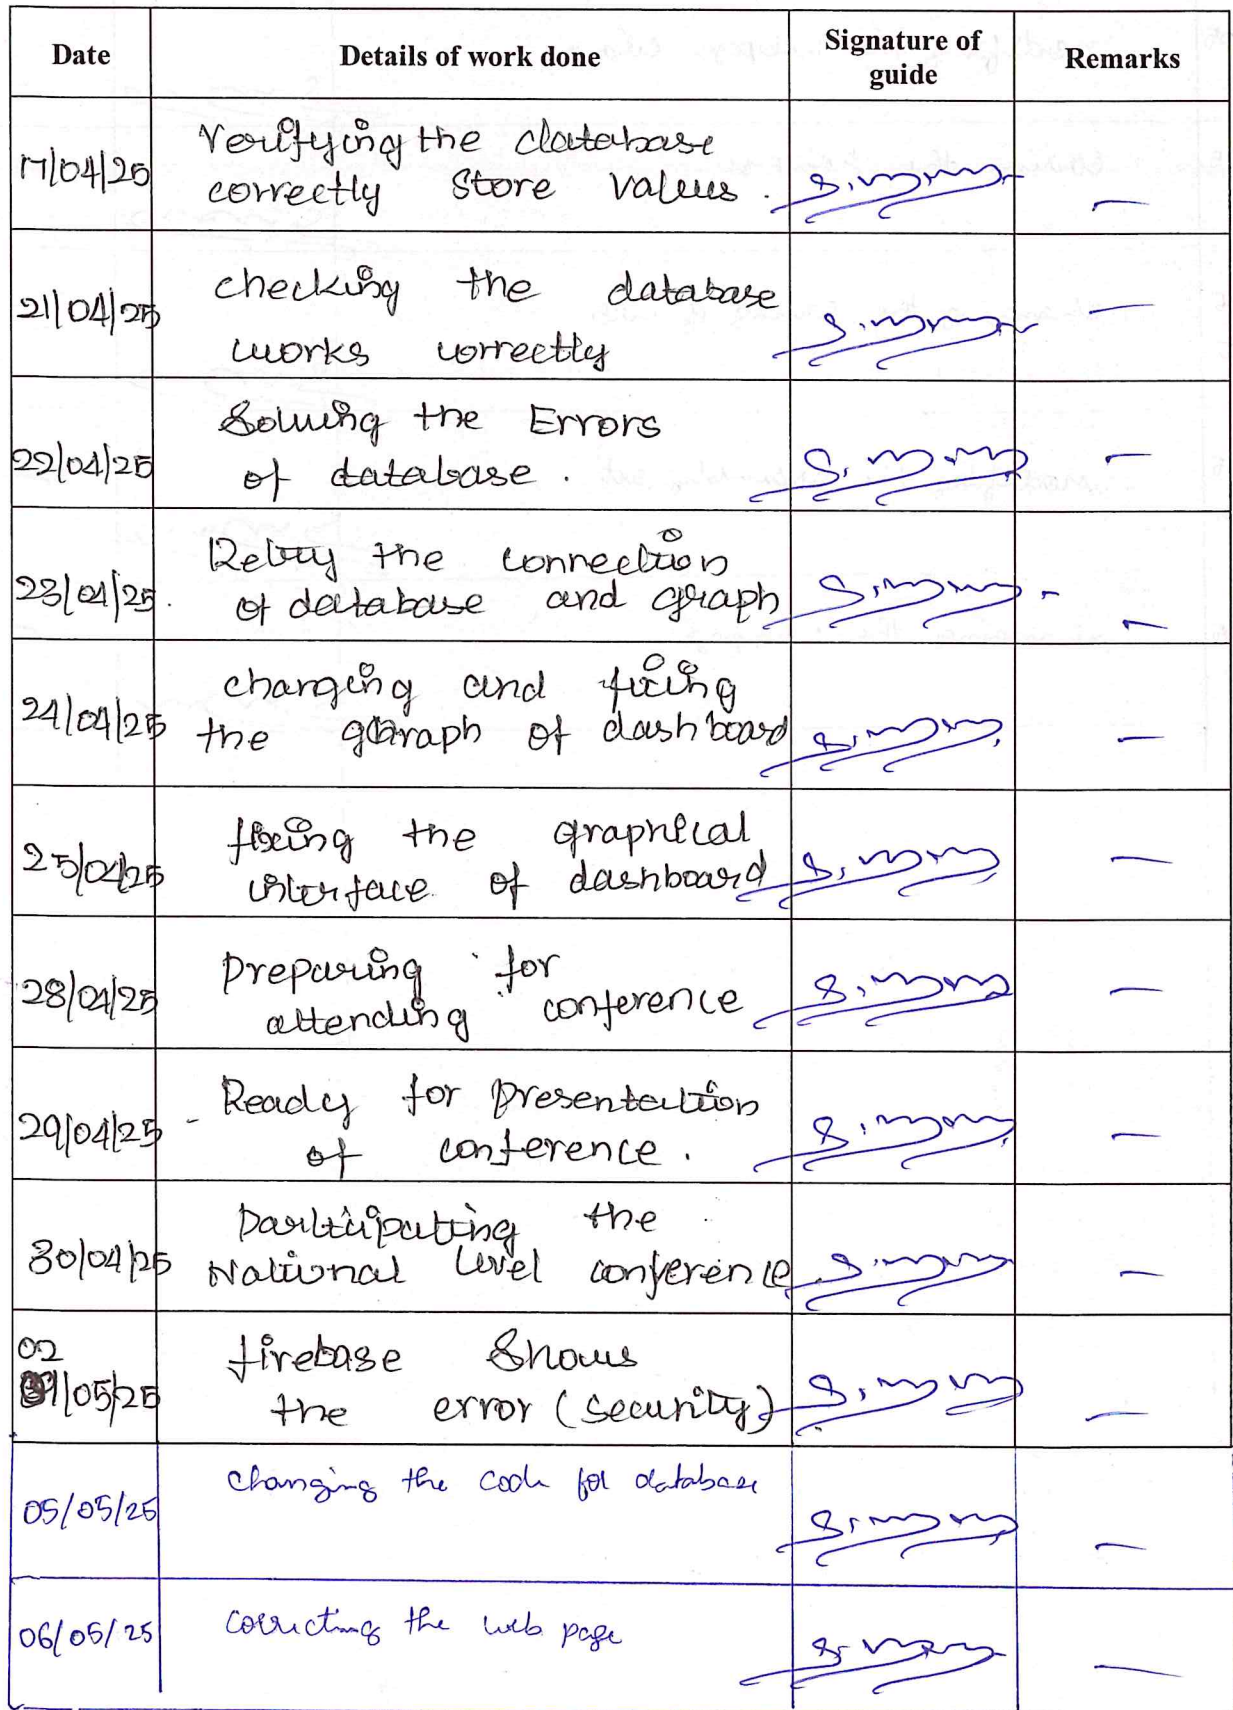 Date Details of work done Signature of guide Remarks
17/04/25 Verifying the database
correctly store values.
–
21/04/25 checking the database
works correctly
–
22/04/25 Solving the Errors
of database.
–
23/04/25. Retry the connection
of database and graph
–
24/04/25 changing and fixing
the graph of dashboard
–
25/04/25 fixing the graphical
interface of dashboard
–
28/04/25 preparing for
attending conference
–
29/04/25 - Ready for presentation
of conference.
–
30/04/25 participating the
National level conference
–
02
/05/25 firebase Shows
the error (security)
–
05/05/25 changing the code for database
–
06/05/25 correcting the web page
–